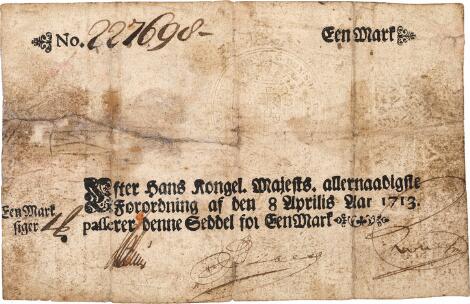 No. 227698-
Een Mark
Efter Hans Kongel. Majests. allernaadigste
Forordning af den 8 Aprilis Aar 1713.
passerer denne Seddel for Een Mark
Een Mark
siger